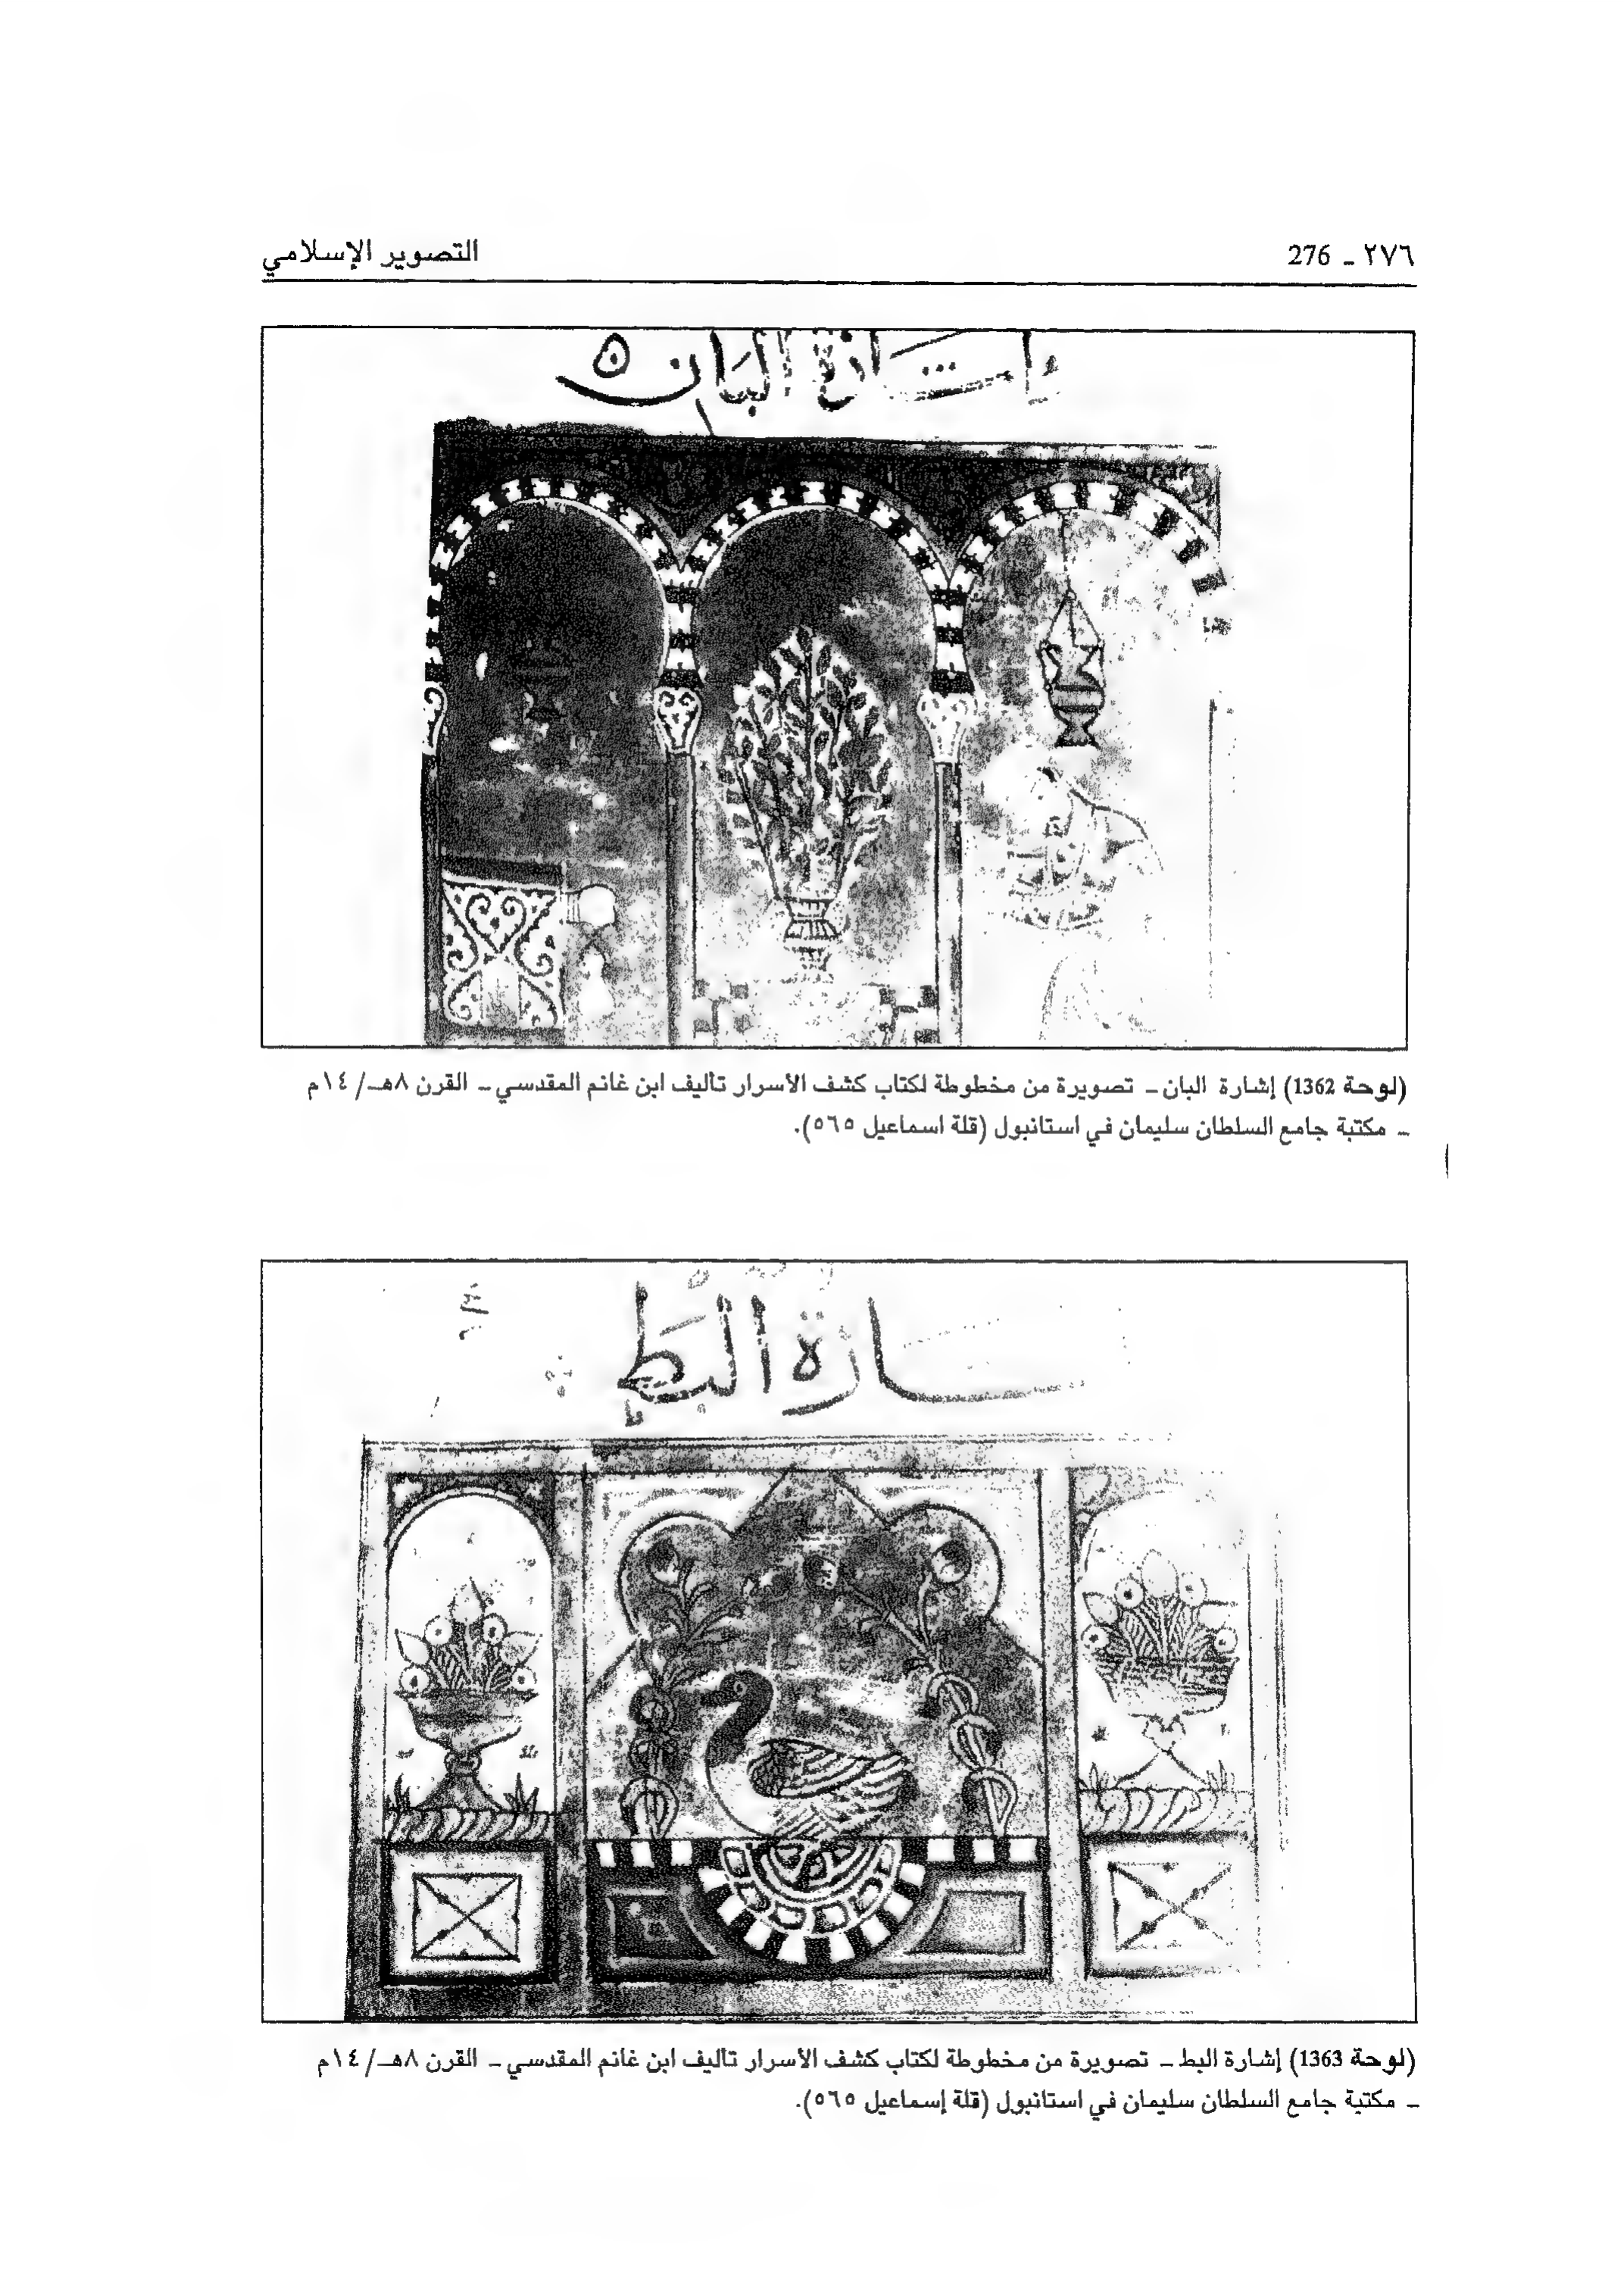 ٢٧٦ ـ 276
التصوير الإسلامي
إشارة البان
(لوحة 1362) إشارة البان ـ تصويرة من مخطوطة لكتاب كشف الأسرار تأليف ابن غانم المقدسي ـ القرن ٨هـ/ ١٤م
ـ مكتبة جامع السلطان سليمان في استانبول (قلة اسماعيل ٥٦٥).
ـارة البط
(لوحة 1363) إشارة البط ـ تصويرة من مخطوطة لكتاب كشف الأسرار تأليف ابن غانم المقدسي ـ القرن ٨هـ/ ١٤م
ـ مكتبة جامع السلطان سليمان في استانبول (قلة إسماعيل ٥٦٥).